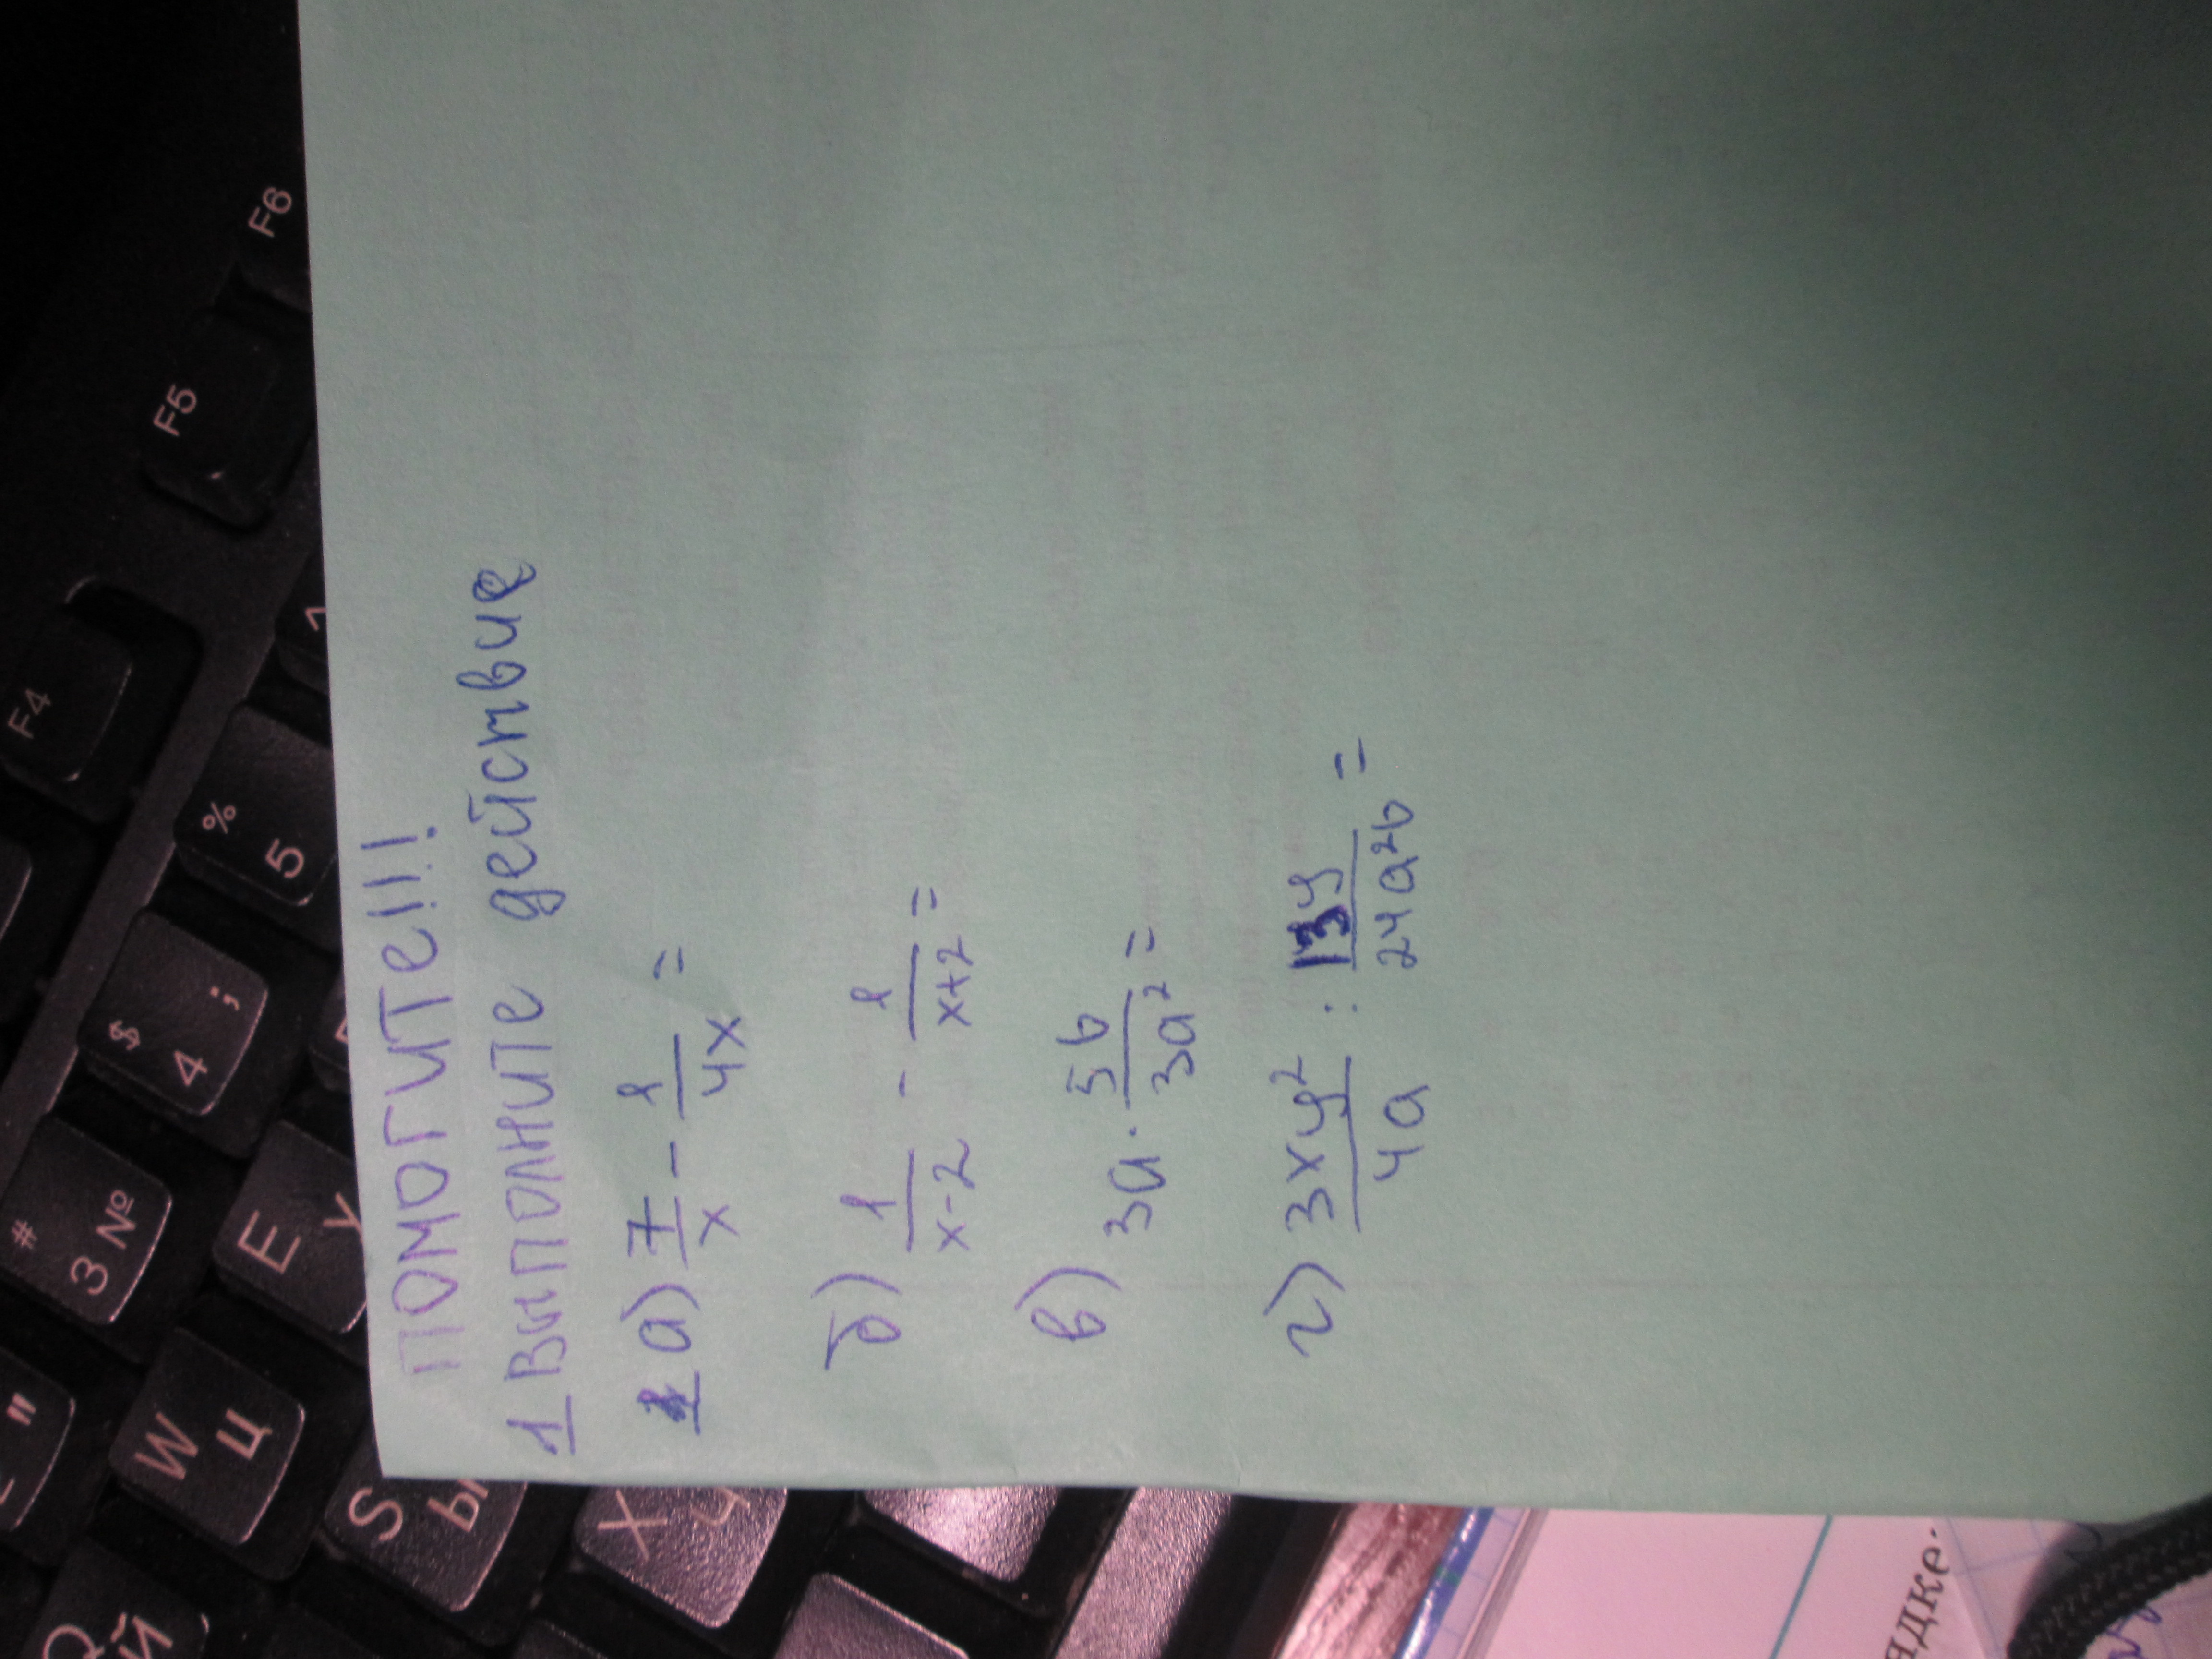 ПОМОГИТЕ!!!
1 Выполните действие
1 а) 7/x - 1/4x =
б) 1/x-2 - 1/x+2 =
в) 3a · 5b/3a² =
г) 3xy²/4a : 13y/24a²b =
F4
F5
F6
# 3 №
$ 4 ;
% 5
W Ц
E У
S Ы
X Ч
Й
ядке.